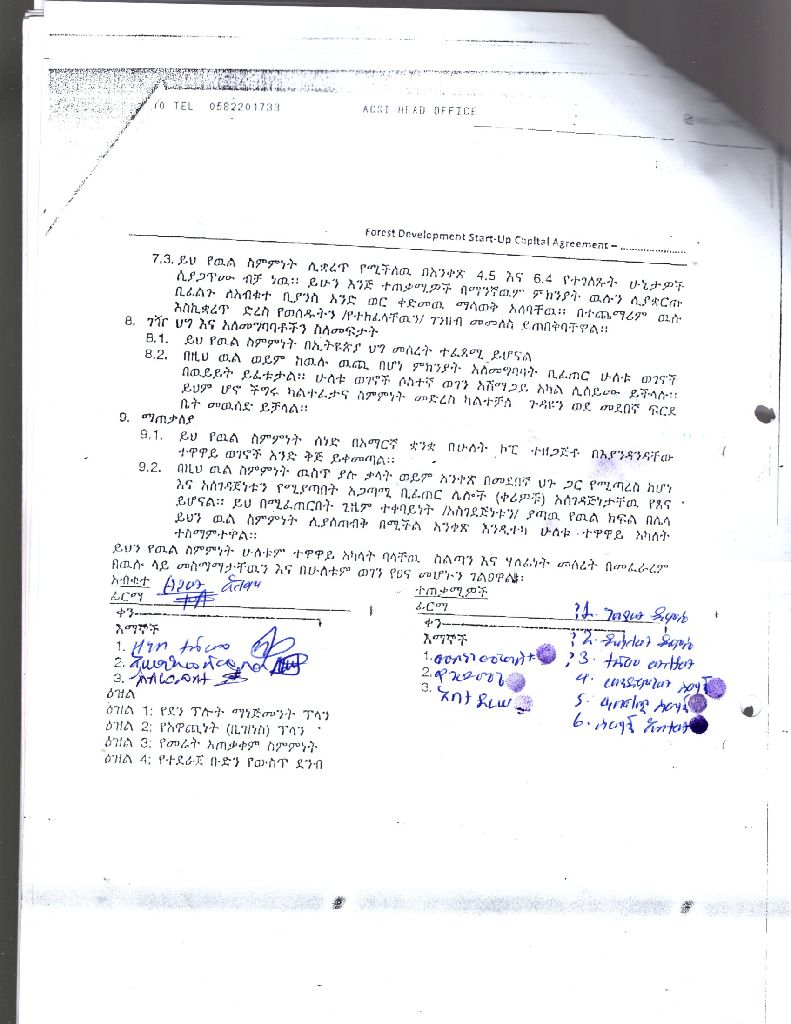 TO TEL 0582201733 ACSI HEAD OFFICE
Forest Development Start-Up Capital Agreement – ......................
7.3. ይህ የዉል ስምምነት ሊቋረጥ የሚችለዉ በአንቀጽ 4.5 እና 6.4 የተገለጹት ሁኔታዎች
ሲያጋጥሙ ብቻ ነዉ፡፡ ይሁን እንጅ ተጠቃሚዎች በማንኛዉም ምክንያት ዉሉን ሊያቋርጡ
ቢፈልጉ ለአብቁተ ቢያንስ አንድ ወር ቀድመዉ ማሳወቅ አለባቸዉ፡፡ በተጨማሪም ዉሉ
እስኪቋረጥ ድረስ የወሰዱትን /የተከፈላቸዉን/ ገንዘብ መመለስ ይጠበቅባቸዋል፡፡
8. ገዥ ህግ እና አለመግባባቶችን ስለመፍታት
8.1. ይህ የዉል ስምምነት በኢትዩጵያ ህግ መሰረት ተፈጻሚ ይሆናል
8.2. በዚህ ዉል ወይም ከዉሉ ዉጪ በሆነ ምክንያት አለመግባባት ቢፈጠር ሁለቱ ወገኖች
በዉይይት ይፈቱታል፡፡ ሁለቱ ወገኖች ሶስተኛ ወገን አሸማጋይ አካል ሊሰይሙ ይችላሉ፡፡
ይህም ሆኖ ችግሩ ካልተፈታና ስምምነት መድረስ ካልተቻለ ጉዳዩን ወደ መደበኛ ፍርድ
ቤት መዉሰድ ይቻላል፡፡
9. ማጠቃለያ
9.1. ይህ የዉል ስምምነት ሰነድ በአማርኛ ቋንቋ በሁለት ኮፒ ተዘጋጅቶ በእያንዳንዳቸው
ተዋዋይ ወገኖች አንድ ቅጅ ይቀመጣል፡፡
9.2. በዚህ ዉል ስምምነት ዉስጥ ያሉ ቃላት ወይም አንቀጽ በመደበኛ ህጉ ጋር የሚጣረስ ከሆነ
እና አስገዳጅነቱን የሚያጣበት አጋጣሚ ቢፈጠር ሌሎች (ቀሪዎቹ) አስገዳጅነታቸዉ የጸና
ይሆናል፡፡ ይህ በሚፈጠርበት ጊዜም ተቀባይነት /አስገደጅነቱን/ ያጣዉ የዉል ክፍል በሌላ
ይህን ዉል ስምምነት ሊያስጠብቅ በሚችል አንቀጽ እንዲተካ ሁለቱ ተዋዋይ አካለት
ተስማምተዋል፡፡
ይህን የዉል ስምምነት ሁለቱም ተዋዋይ አካላት ባላቸዉ ስልጣን እና ሃላፊነት መሰረት በመፈራረም
በዉሉ ላይ መስማማታቸዉን እና በሁለቱም ወገን የፀና መሆኑን ገልፀዋል፡
አብቁተ
ተጠቃሚዎች
ፊርማ
ፊርማ
ቀን
ቀን
እማኞች
እማኞች
1.
1.
2.
2.
3.
3.
4.
5.
6.
ዕዝል
ዕዝል 1: የደን ፕሎት ማነጅመንት ፕላን
ዕዝል 2; የአዋጪነት (ቢዝነስ) ፕላን
ዕዝል 3; የመሬት አጠቃቀም ስምምነት
ዕዝል 4; የተደራጀ ቡድን የውስጥ ደንብ